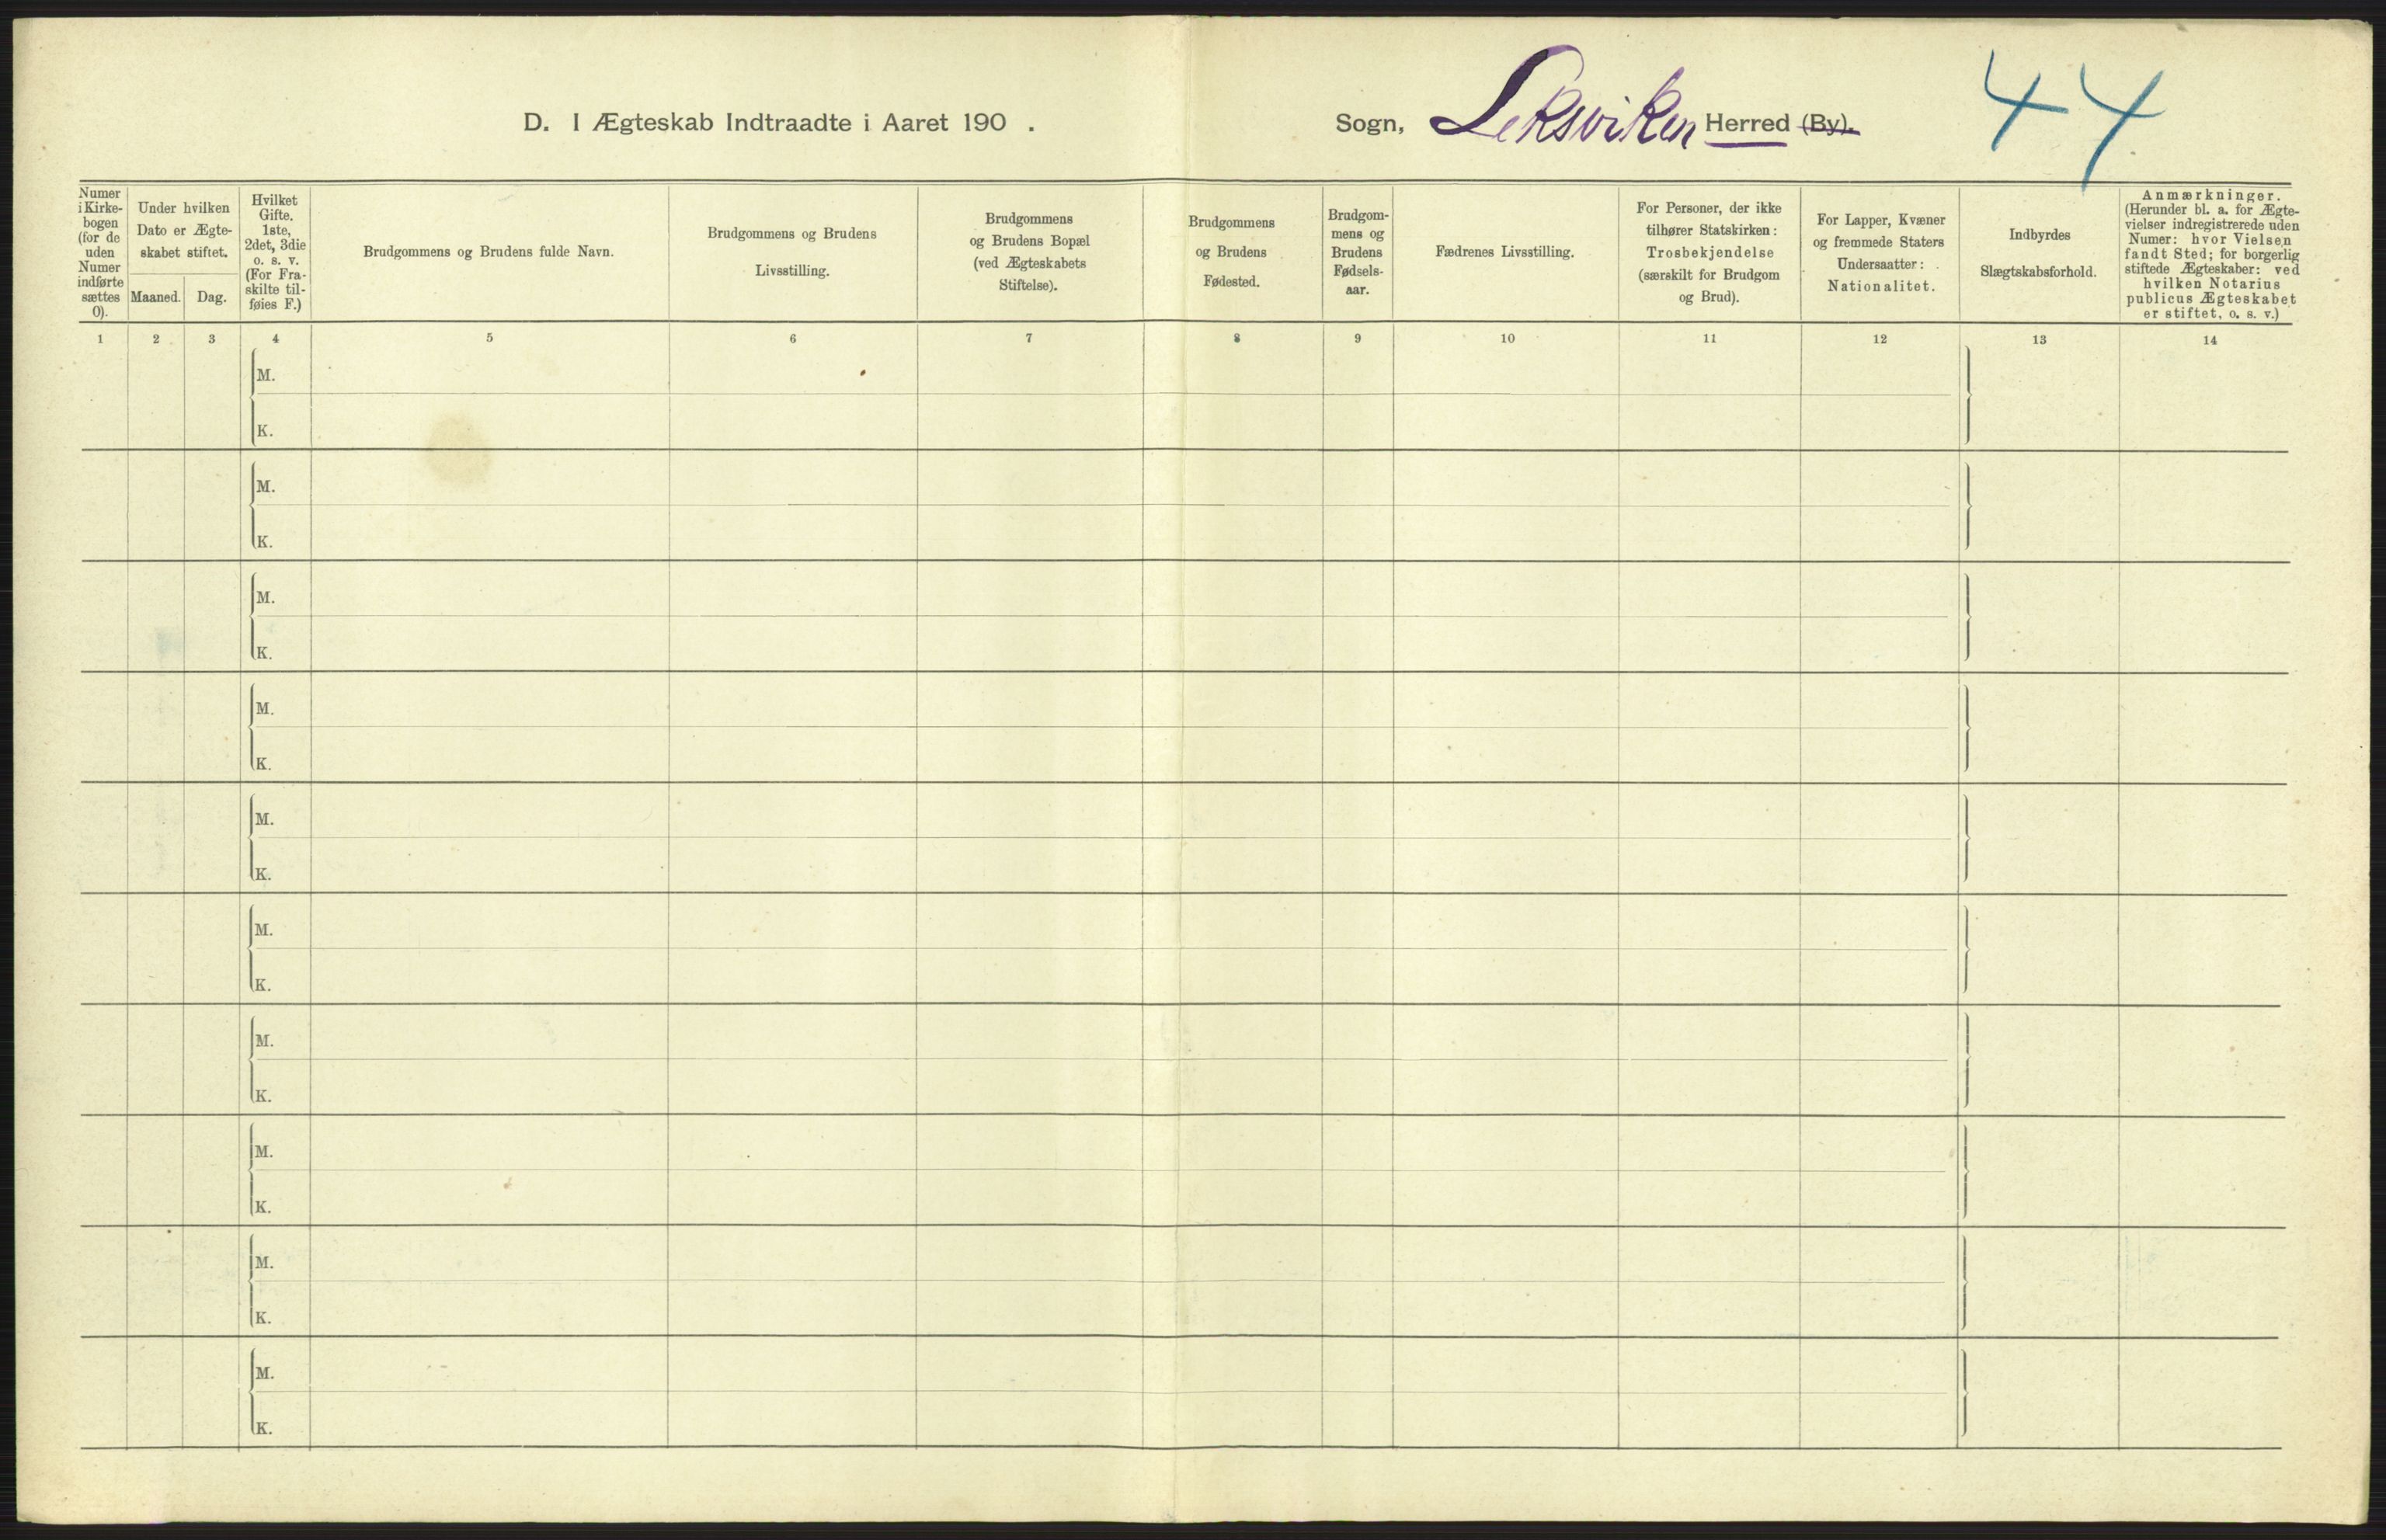 D. I Ægteskab Indtraadte i Aaret 190 .
Sogn, Leksviken Herred (By).
44
Numer
i Kirke-
bogen
(for de
uden
Numer
indførte
sættes
0).
Under hvilken
Dato er Ægte-
skabet stiftet.
Maaned.
Dag.
Hvilket
Gifte.
1ste,
2det, 3die
o. s. v.
(For Fra-
skilte til-
føies F.)
Brudgommens og Brudens fulde Navn.
Brudgommens og Brudens
Livsstilling.
Brudgommens
og Brudens Bopæl
(ved Ægteskabets
Stiftelse).
Brudgommens
og Brudens
Fødested.
Brudgom-
mens og
Brudens
Fødsels-
aar.
Fædrenes Livsstilling.
For Personer, der ikke
tilhører Statskirken:
Trosbekjendelse
(særskilt for Brudgom
og Brud).
For Lapper, Kvæner
og fremmede Staters
Undersaatter:
Nationalitet.
Indbyrdes
Slægtskabsforhold.
Anmærkninger.
(Herunder bl. a. for Ægte-
vielser indregistrerede uden
Numer: hvor Vielsen
fandt Sted; for borgerlig
stiftede Ægteskaber: ved
hvilken Notarius
publicus Ægteskabet
er stiftet, o. s. v.)
1 2 3 4 5 6 7 8 9 10 11 12 13 14
M.
K.
M.
K.
M.
K.
M.
K.
M.
K.
M.
K.
M.
K.
M.
K.
M.
K.
M.
K.